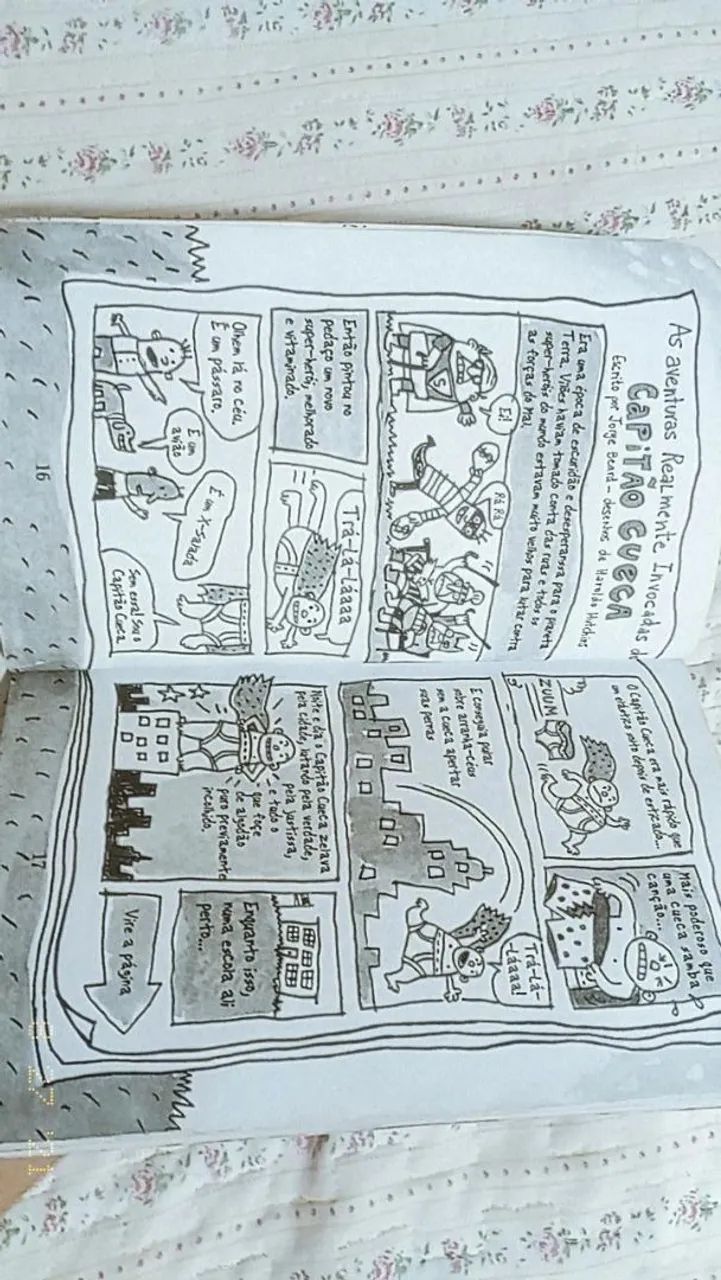 As aventuras Realmente Invocadas d
CAPITÃO CUECA
Escrito por Jorge Beard — desenhos de Haroldo Hutchins
Era uma época de escuridão e desesperansa para o planeta
Terra. Vilões haviam tomado conta das ruas e todos os
super-heróis do mundo estavam muito velhos para lutar contra
as forças do mal.
Ei!
S
Rá Rá
Então pintou no
pedaço um novo
super-herói, melhorado
e vitaminado.
Trá-lá-láaaa
Olhem lá no céu.
É um pássaro.
É um
avião
É um X-salada
Sem essa! Sou o
Capitão Cueca.
16
O Capitão Cueca era mais rápido que
um elástico solto depois de esticado...
ZUUM
Mais poderoso que
uma cueca samba
canção...
E conseguia pular
sobre arranha-céus
sem a cueca apertar
suas pernas
Trá-lá-
-láaaa!
Noite e dia o Capitão Cueca zelava
pela cidade, lutando pela verdade,
pela justissa,
e tudo o
que fosse
de algodão
puro previamente
incolhido.
Enquanto isso,
numa escola ali
perto...
Vire a página
17